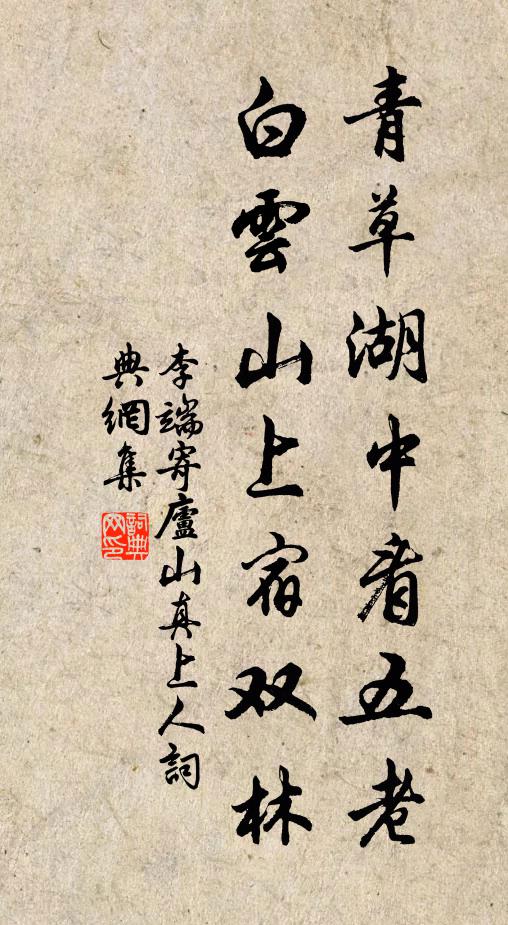 青草湖中看五老
白雲山上宿双林
李端寄廬山真上人詞
典網集
詞典
网印